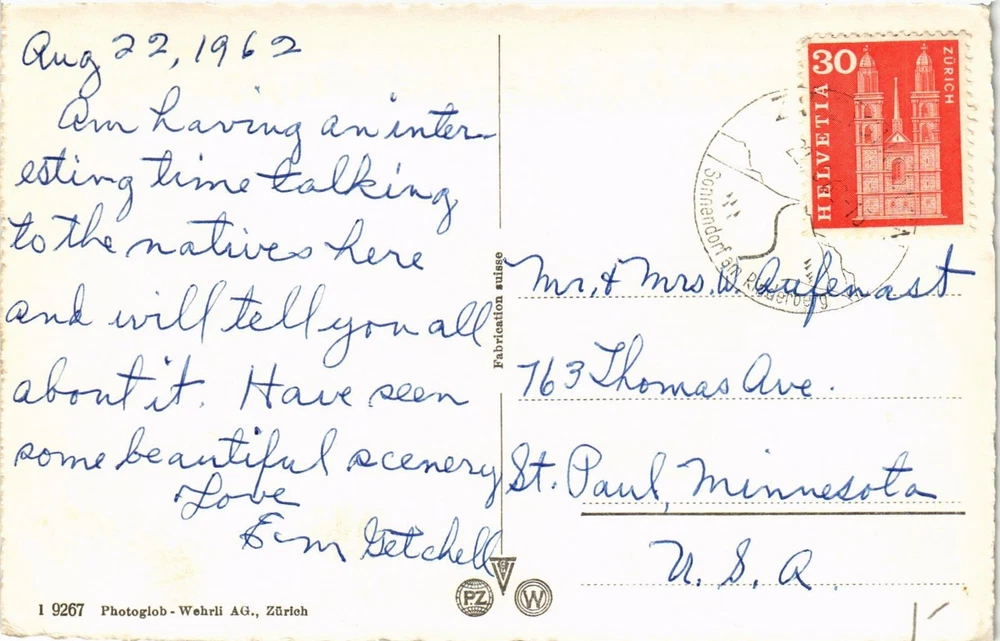 Aug 22, 1962
Am having an inter-
esting time talking
to the natives here
and will tell you all
about it. Have seen
some beautiful scenery
Love
Getchell
1 9267 Photoglob - Wehrli AG., Zürich
Fabrication suisse
PZ
W
30
HELVETIA
ZÜRICH
Sonnendorf am
Mr. & Mrs. W. Aufenast
763 Thomas Ave.
St. Paul, Minnesota
U. S. A.